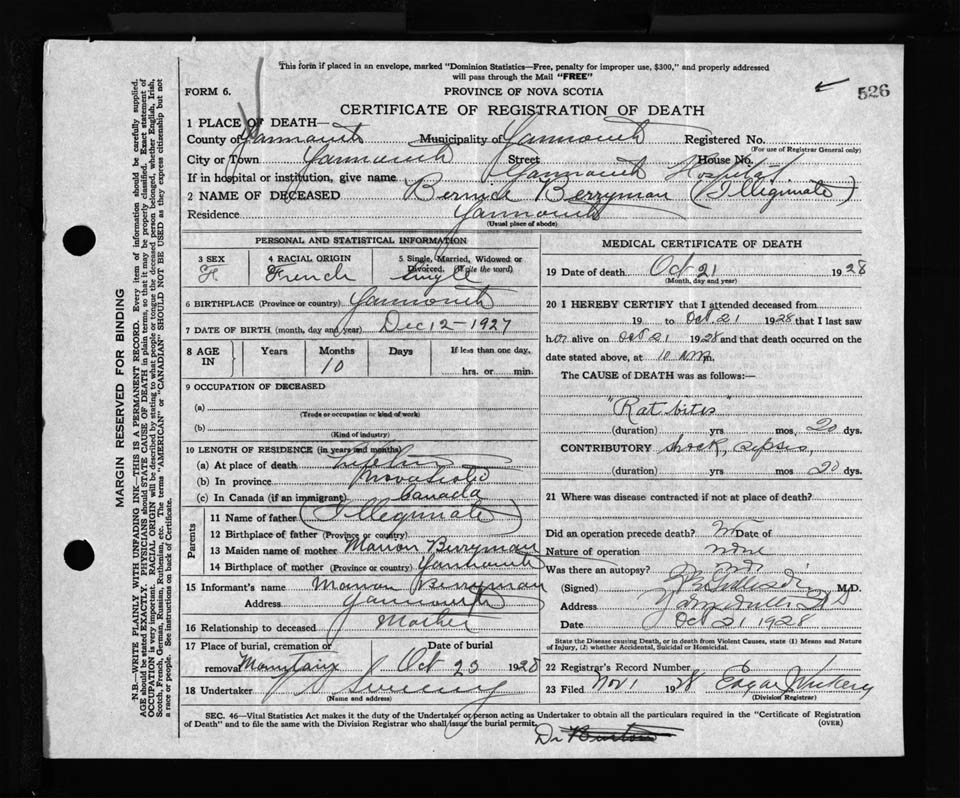 This form if placed in an envelope, marked "Dominion Statistics—Free, penalty for improper use, $300," and properly addressed
will pass through the Mail "FREE"
526
FORM 6. PROVINCE OF NOVA SCOTIA
CERTIFICATE OF REGISTRATION OF DEATH
1 PLACE OF DEATH—
County of Yarmouth Municipality of Yarmouth Registered No.
(For use of Registrar General only)
City or Town Yarmouth Street House No.
If in hospital or institution, give name Yarmouth Hospital
2 NAME OF DECEASED Berryman (Illegimate)
Residence Yarmouth
(Usual place of abode)
PERSONAL AND STATISTICAL INFORMATION
3 SEX 4 RACIAL ORIGIN 5 Single, Married, Widowed or Divorced. (Write the word)
F French Single
6 BIRTHPLACE (Province or country) Yarmouth
7 DATE OF BIRTH (month, day and year) Dec 12 - 1927
8 AGE IN Years Months Days If less than one day,
10 hrs. or min.
9 OCCUPATION OF DECEASED
(a)
(Trade or occupation or kind of work)
(b)
(Kind of industry)
10 LENGTH OF RESIDENCE (in years and months)
(a) At place of death
(b) In province Nova Scotia
(c) In Canada (if an immigrant) Canada
Parents
11 Name of father (Illegimate)
12 Birthplace of father (Province or country)
13 Maiden name of mother Marion Berryman
14 Birthplace of mother (Province or country) Yarmouth
15 Informant's name Marion Berryman
Address Yarmouth
16 Relationship to deceased Mother
17 Place of burial, cremation or Date of burial
removal Mountain Oct 23 1928
18 Undertaker
(Name and address)
MEDICAL CERTIFICATE OF DEATH
19 Date of death Oct 21 1928
(Month, day and year)
20 I HEREBY CERTIFY that I attended deceased from
19 to Oct. 21 1928 that I last saw
her alive on Oct 21 1928 and that death occurred on the
date stated above, at 10 m.
The CAUSE of DEATH was as follows:—
"Rat bites"
(duration) yrs mos. 20 dys.
CONTRIBUTORY Shock, sepsis,
(duration) yrs mos. 20 dys.
21 Where was disease contracted if not at place of death?
Did an operation precede death? No Date of
Nature of operation none
Was there an autopsy? no
(Signed) M.D.
Address Yarmouth N S
Date Oct 21 1928
State the Disease causing Death, or in death from Violent Causes, state (1) Means and Nature
of Injury, (2) whether Accidental, Suicidal or Homicidal.
22 Registrar's Record Number
23 Filed Nov 1 1928 Edgar
(Division Registrar)
SEC. 46—Vital Statistics Act makes it the duty of the Undertaker or person acting as Undertaker to obtain all the particulars required in the "Certificate of Registration
of Death" and to file the same with the Division Registrar who shall issue the burial permit. (OVER)
Dr Burton
MARGIN RESERVED FOR BINDING
N.B.—WRITE PLAINLY WITH UNFADING INK—THIS IS A PERMANENT RECORD. Every item of information should be carefully supplied.
AGE should be stated EXACTLY. PHYSICIANS should STATE CAUSE OF DEATH in plain terms, so that it may be properly classified. Exact statement of
OCCUPATION is very important. RACIAL ORIGIN will be described by stating to what people or tongue the deceased person belonged, whether English, Irish,
Scotch, French, German, Russian, Ruthenian, etc. The terms "AMERICAN" or "CANADIAN" SHOULD NOT BE USED as they express citizenship but not
a race or people. See instructions on back of Certificate.